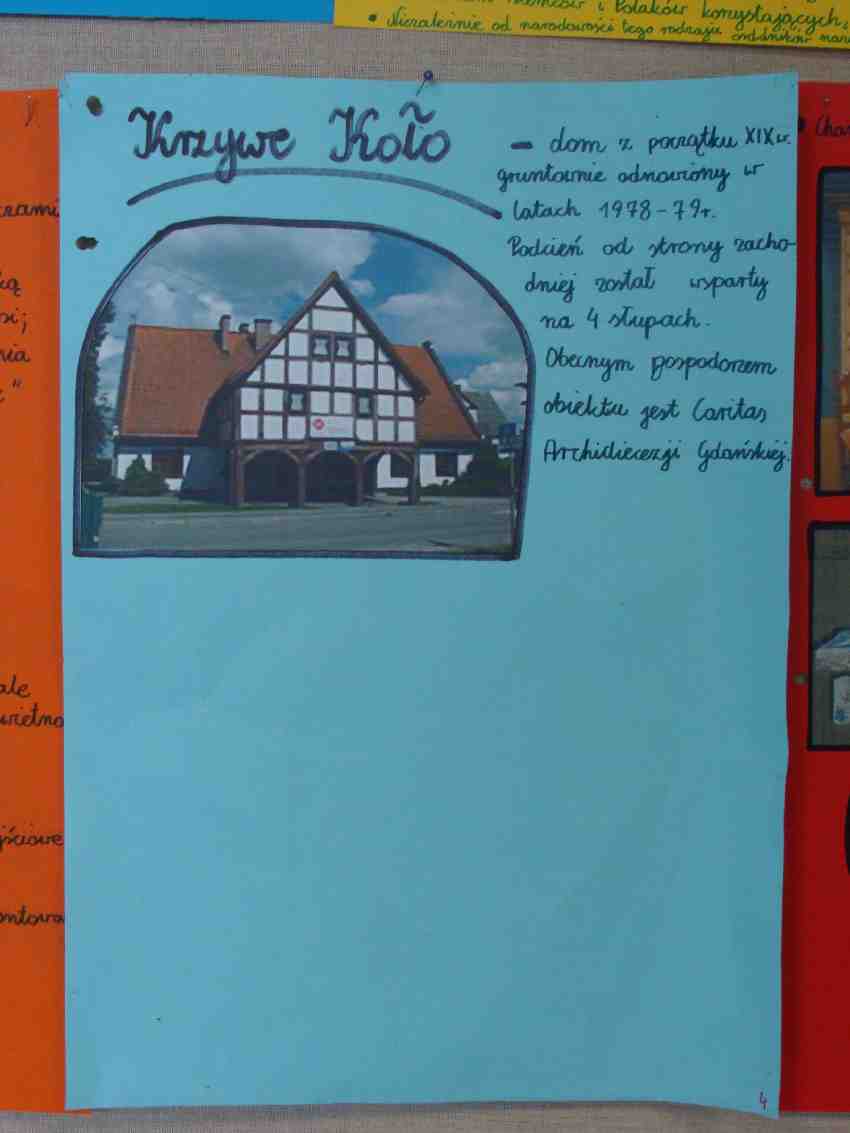 i Polaków korzystających,
• Niezależnie od narodowości tego rodzaju
Krzywe Koło
– dom z początku XIX w.
gruntownie odnowiony w
latach 1978-79r.
Podcień od strony zacho-
dniej został wsparty
na 4 słupach.
Obecnym gospodarzem
obiektu jest Caritas
Archidiecezji Gdańskiej.
4